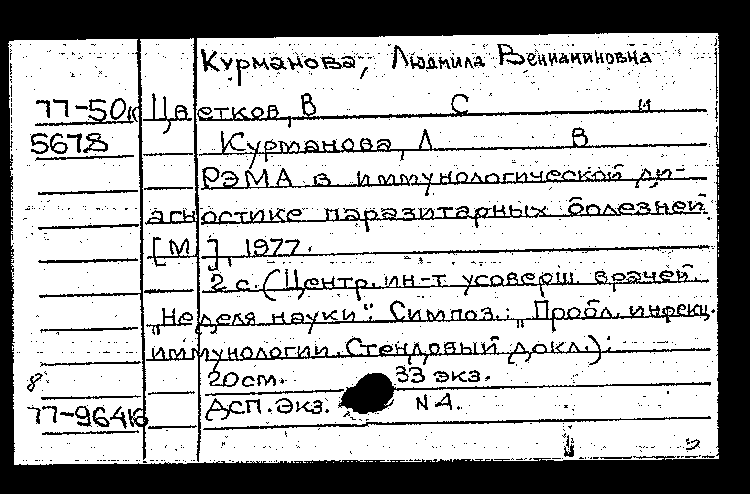 Курманова, Людмила Вениаминовна
77-50к Цветков, В С и
5678 Курманова, Л В
РЭМА в иммунологической ди-
агностике паразитарных болезней.
[М], 1977.
2 с. (Центр. ин-т усоверш. врачей.
"Неделя науки": Симпоз.: "Пробл. инфекц.
иммунологии. Стендовый докл.):
20 см. 33 экз.
8
77-96416 Дсп. экз. N 4.